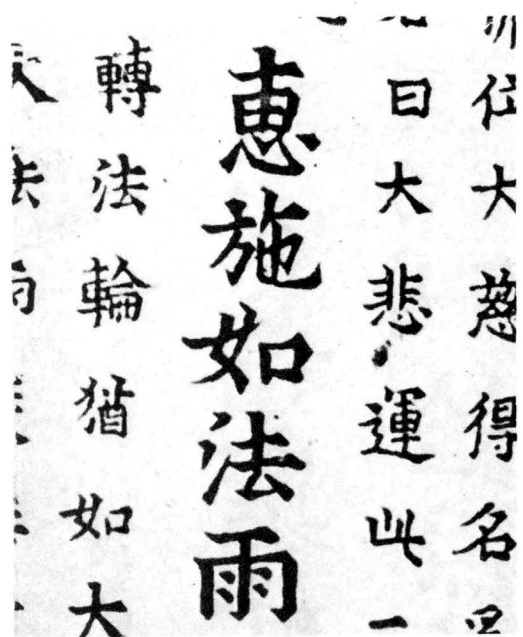 大慈得名
曰大悲運此一
惠施如法雨
轉法輪猶如大
法雨